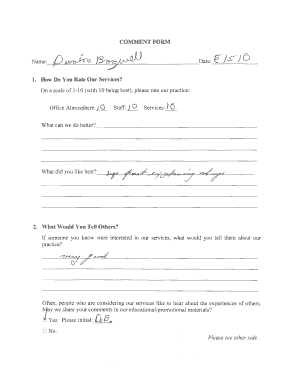 COMMENT FORM
Name: Date:
1. How Do You Rate Our Services?
On a scale of 1-10 (with 10 being best), please rate our practice:
Office Atmosphere: 10 Staff: 10 Services: 10
What can we do better?
What did you like best?
2. What Would You Tell Others?
If someone you know were interested in our services, what would you tell them about our
practice?
very good
Often, people who are considering our services like to hear about the experiences of others.
May we share your comments in our educational/promotional materials?
Yes. Please initial: D.B.
□ No.
Please see other side...